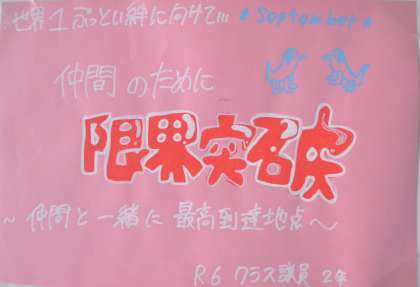 世界1ぶっとい絆に向けて…
★September★
仲間のために
限界突破
～仲間と一緒に最高到達地点～
R.6 クラス議員 2年